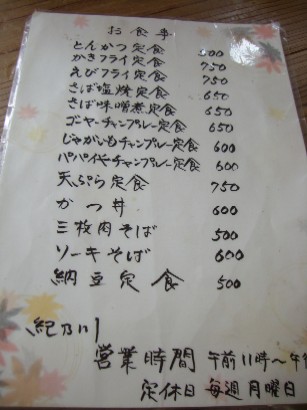 お食事
とんかつ定食 800
かきフライ定食 750
えびフライ定食 750
さば塩焼定食 650
さば味噌煮定食 650
ゴーヤーチャンプルー定食 650
じゃがいもチャンプルー定食 600
パパイヤーチャンプルー定食 600
天ぷら定食 750
かつ丼 600
三枚肉そば 500
ソーキそば 600
納豆定食 500
紀乃川
営業時間 午前11時〜午後
定休日 毎週月曜日